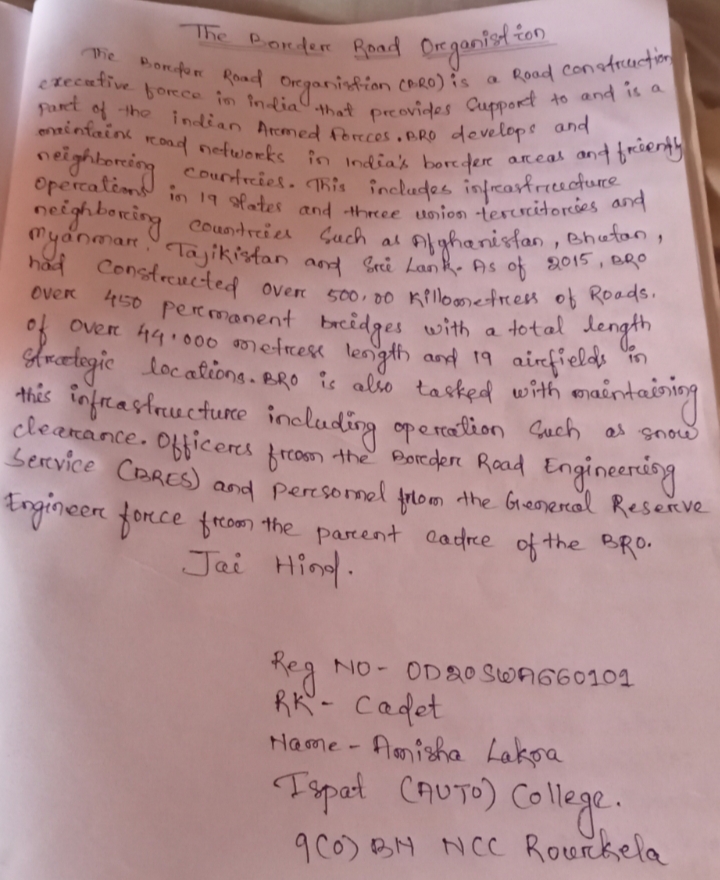 The Border Road Organistion
The Border Road Organistion (BRO) is a Road construction
executive force in india that provides Support to and is a
part of the indian Armed forces. BRO develops and
maintains road networks in India's border areas and friendly
neighboring countries. This includes infrastructure
Operations in 19 states and three union territories and
neighboring countries Such as Afghanistan, Bhutan,
Myanmar, Tajikistan and Sri Lank. As of 2015, BRO
had Constructed over 500,00 Killometress of Roads.
Over 450 permanent bridges with a total length
of over 44,000 metress length and 19 airfields in
Strategic locations. BRO is also tasked with maintaining
this infrastructure including operation Such as snow
clearance. Officers from the Border Road Engineering
Service (BRES) and personnel from the General Reserve
Engineer force from the parent cadre of the BRO.
Jai Hind.
Reg NO - OD20SWA660101
RK - Cadet
Name - Amisha Lakra
Ispat (AUTO) College.
9(O) BN NCC Rourkela